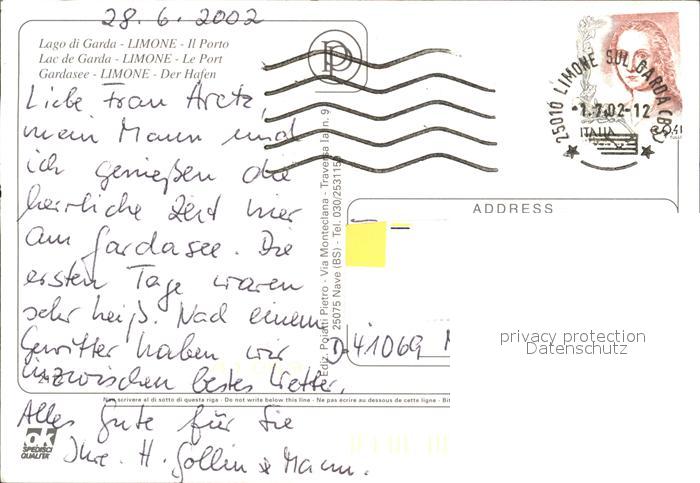 28.6.2002
Lago di Garda - LIMONE - Il Porto
Lac de Garda - LIMONE - Le Port
Gardasee - LIMONE - Der Hafen
Liebe Frau Aretz,
mein Mann und
ich genießen die
herrliche Zeit hier
am Gardasee. Die
ersten Tage waren
sehr heiß. Nach einem
Gewitter haben wir
inzwischen bestes Wetter.
Alles Gute für Sie
Ihre H. Gollin & Mann.
ok
SPEDISCI
QUALITA'
Ediz. Poiatti Pietro - Via Monteclana - Traversa Ia n. 9
25075 Nave (BS) - Tel. 030/2531159
P
25010 LIMONE SUL GARDA (BS)
-1.7.02-12
ITALIA
€0,41
ADDRESS
D-41069 M
privacy protection
Datenschutz
Non scrivere al di sotto di questa riga - Do not write below this line - Ne pas écrire au dessous de cette ligne - Bit